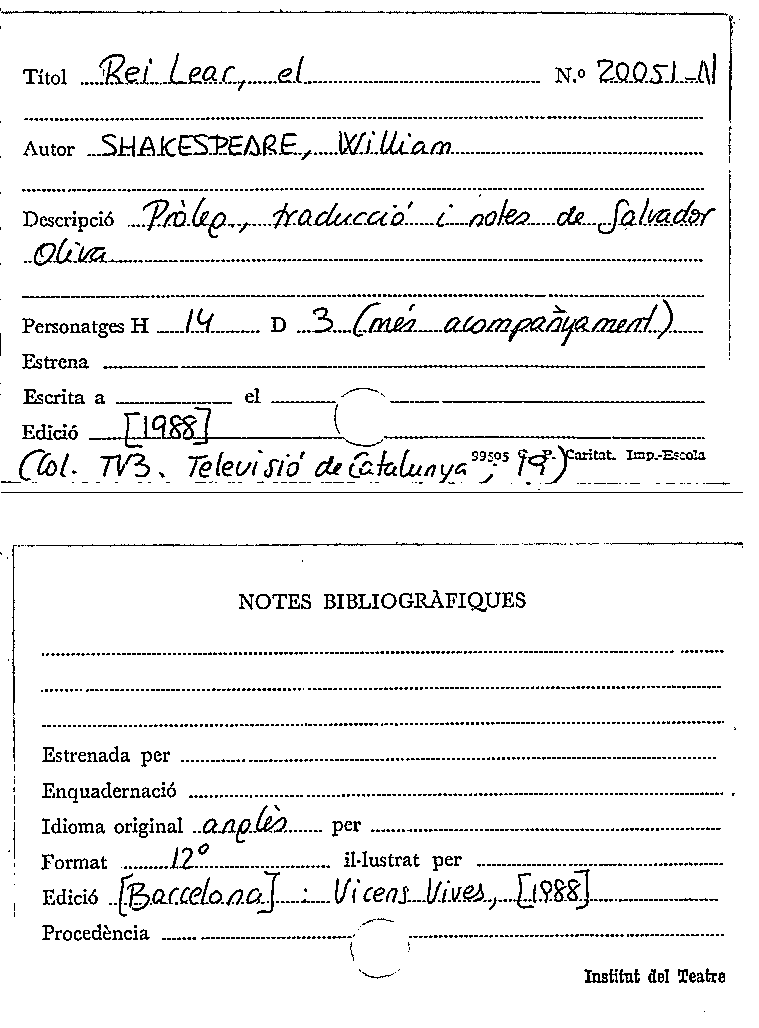 Títol Rei Lear, el N.º 20051-N
Autor SHAKESPEARE, William
Descripció Pròleg, traducció i notes de Salvador
Oliva
Personatges H 14 D 3 (més acompañyament)
Estrena
Escrita a el
Edició [1988]
(Col. TV3. Televisió de Catalunya ; 19) Caritat. Imp.-Escola
NOTES BIBLIOGRÀFIQUES
Estrenada per
Enquadernació
Idioma original anglès per
Format 12º il·lustrat per
Edició [Barcelona] : Vicens Vives, [1988]
Procedència
Institut del Teatre